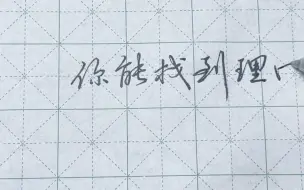 你能找到理